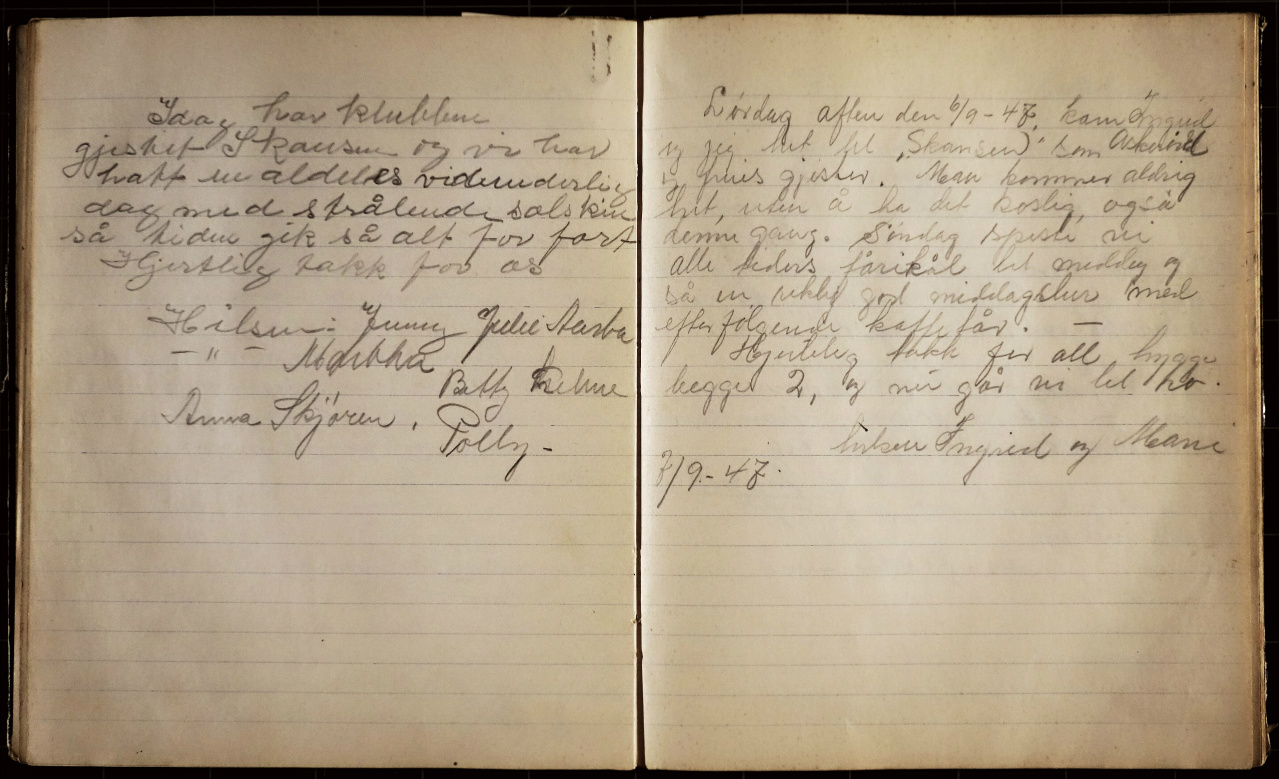 Idag har klubben
gjestet Skansen og vi har
hatt en aldeles vidunderlig
dag med strålende solskin
så tiden gik så alt for fort
Hjertlig takk for os
Hilsen: Jenny Julie Aasba
— " — Martha
Betty Helene
Anna Skjøren,
Polly -
Lørdag aften den 6/9-47, kom Ingrid
og jeg hit til „Skansen" som
gjester. Man kommer aldrig
hit, uten å ha det koslig, også
denne gang. Søndag spiste vi
alle tiders fårikål til middag og
så en riktig god middagslur med
efterfølgende kaffetår. —
Hjertelig takk for all hygge
begge 2, og nu går vi til
hilsen Ingrid og
7/9-47.